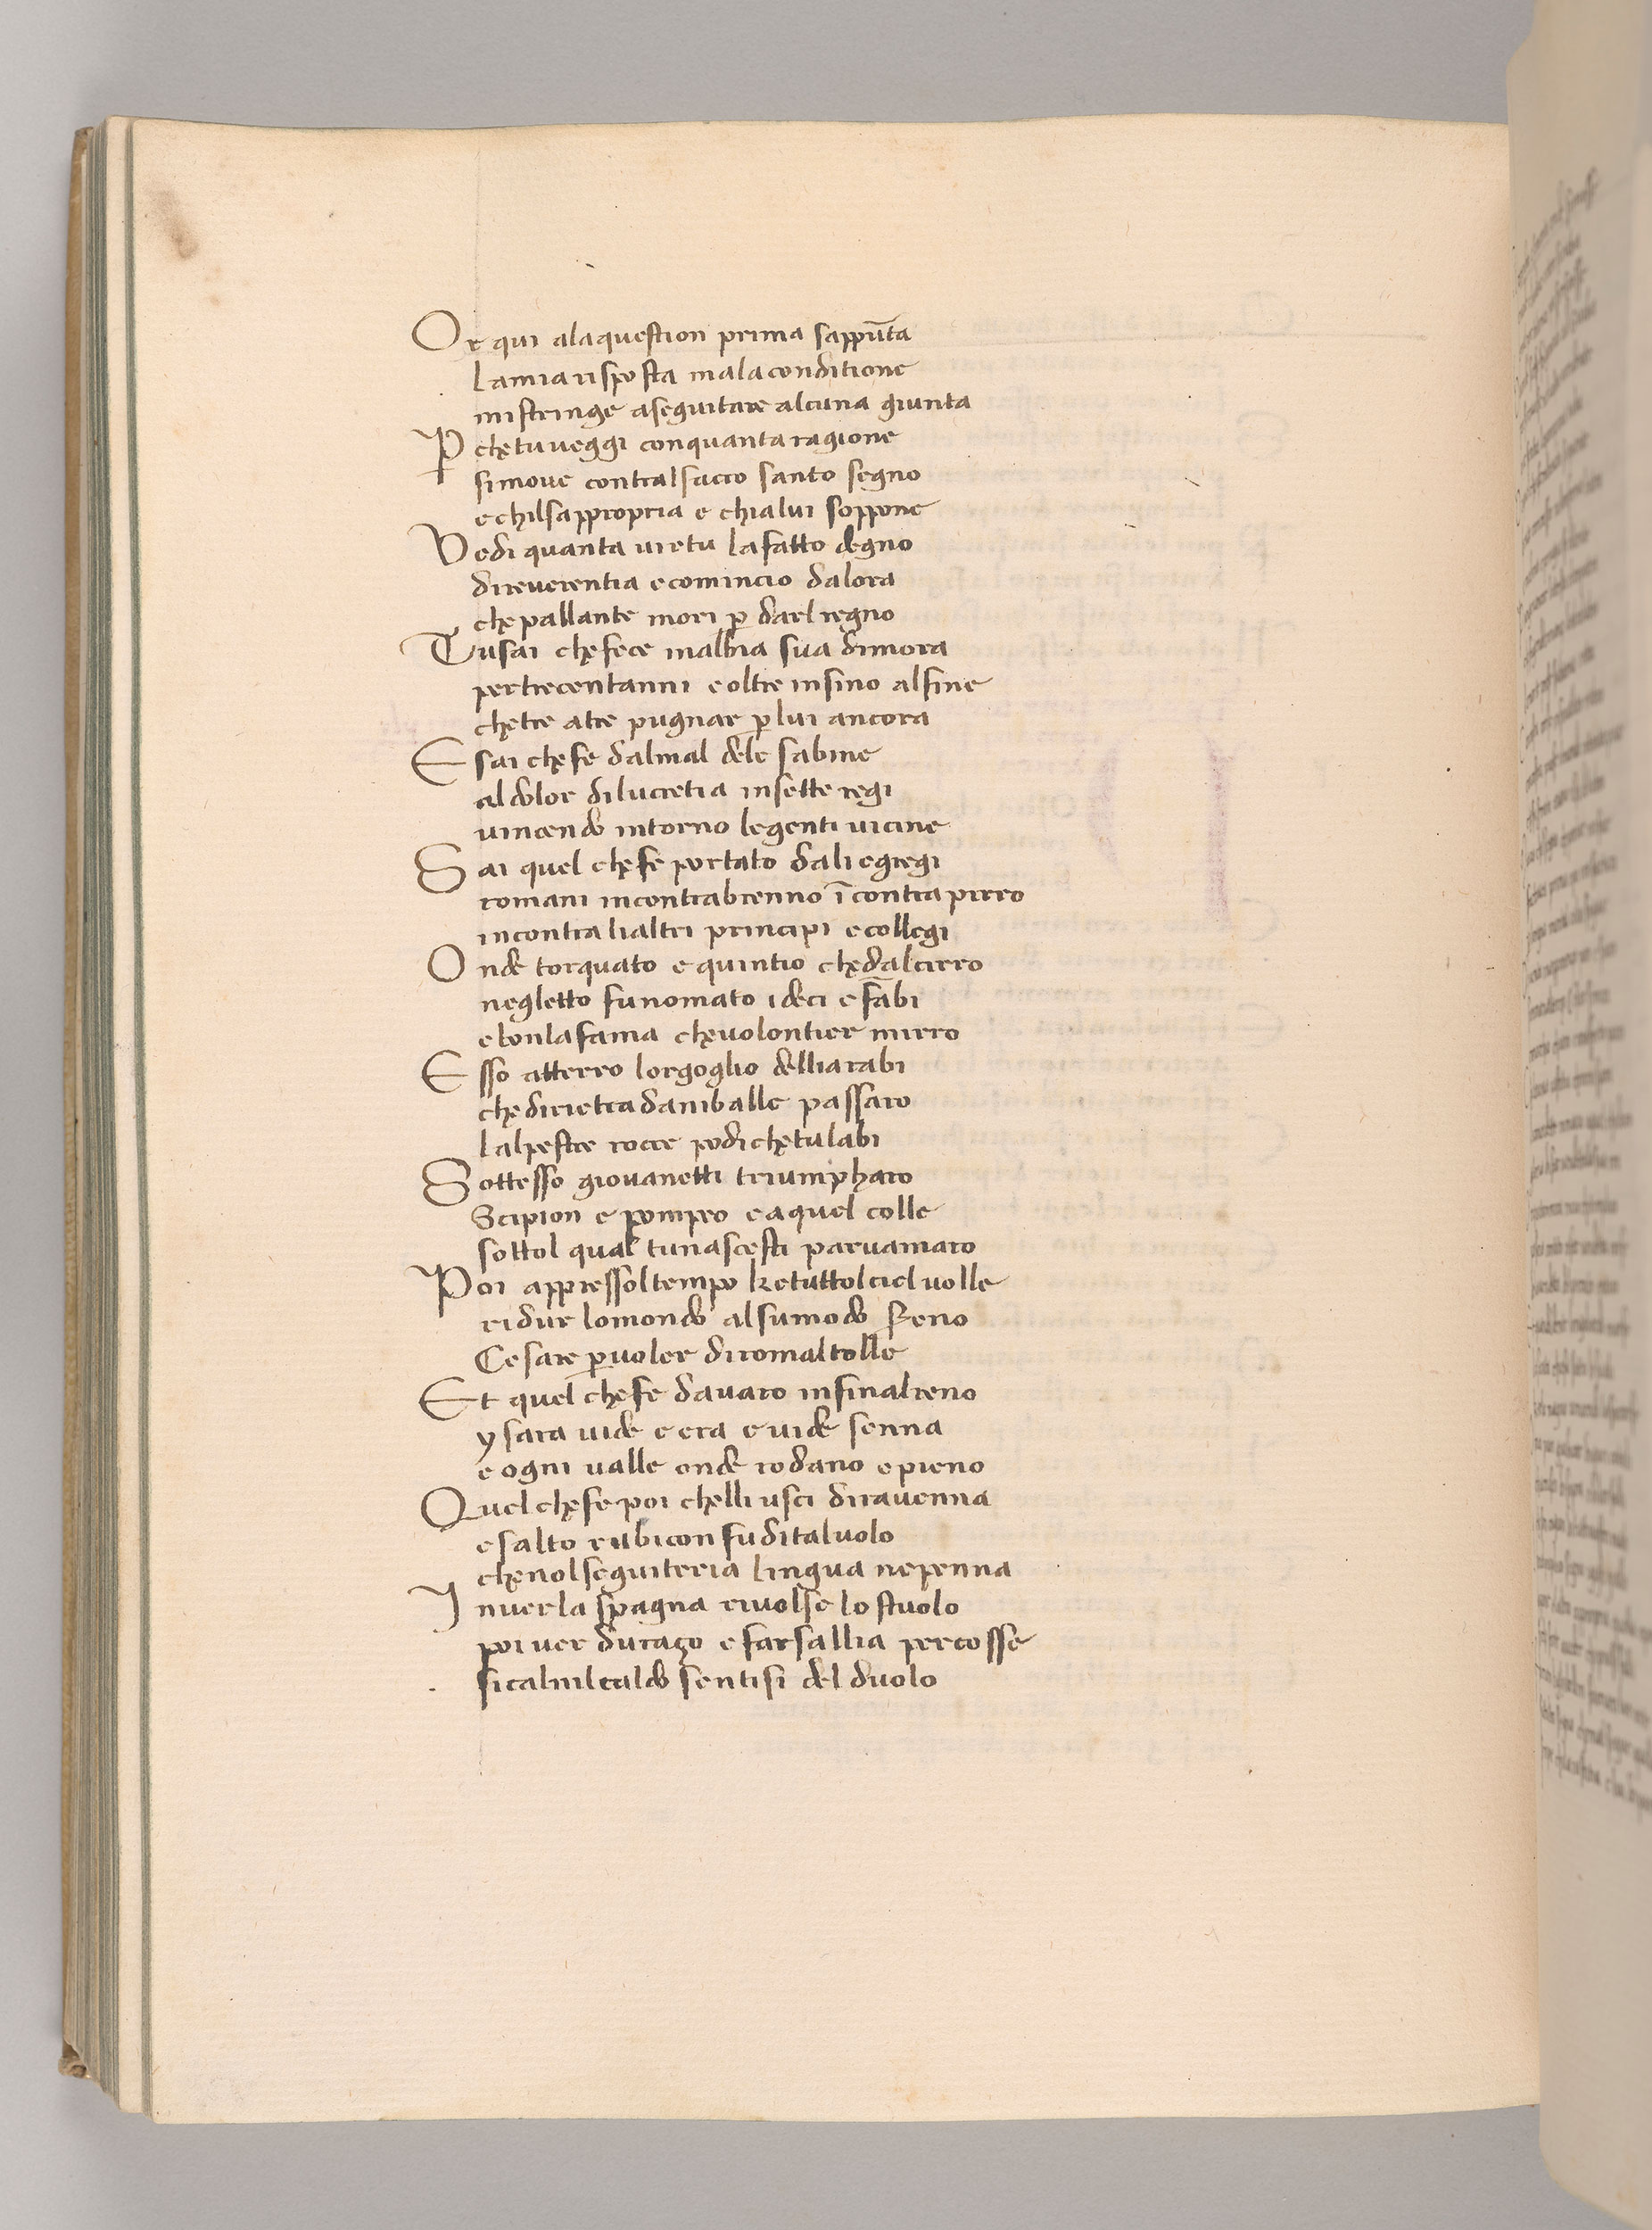 Or qui ala question prima sappūta
la mia risposta mala conditione
mi stringe a seguitare alcuna giunta
P che tu veggi con quanta ragione
si move contral sacro santo segno
e chil sappropria e chi a lui soppone
Vedi quanta virtu la fatto degno
di reverentia e comincio da lora
che pallante mori p̱ darl regno
Tu sai che fece inalbia sua dimora
per trecentanni e oltre insino al fine
che tre a tre pugnar p̱ lui ancora
E sai che fe dal mal dele sabine
al dolor di lucretia in sette regi
vincendo intorno le genti vicine
Sai quel che fe portato dali egregi
romani incontra brenno ī contra pirro
incontra li altri principi e collegi
Onde torquato e quintio che dal cirro
negletto fu nomato i deci e fabi
ebon la fama che volontier mirro
Esso atterro lorgoglio delli arabi
che dirietra daniballe passaro
lalpestre rocce po di che tu labi
Sottesso giovanetti triumpharo
Scipion e pompeo e a quel colle
sottol qual tu nascesti parv amaro
Poi appressol tempo ke tuttol ciel volle
ridur lo mondo al su modo sereno
Cesare p̱ voler di roma l tolle
Et quel che fe da varo insin al reno
ysara vide e era e vide senna
e ogni valle onde rodano e pieno
Quel che fe poi chelli usci di ravenna
e salto rubicon fu di tal volo
che nol seguiteria lingua ne penna
Inver la spagna rivolse lo stuolo
poi ver durazo e farsallia percosse
sical nil caldo senti si del duolo